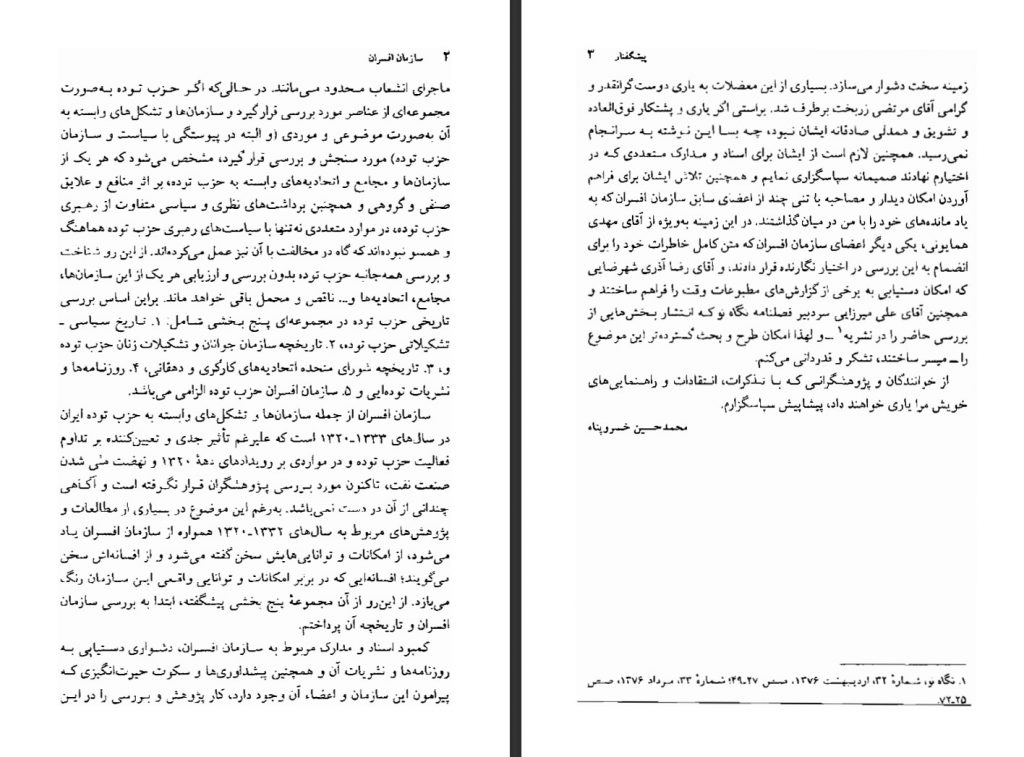 ۲ سازمان افسران
ماجرای انشعاب محدود می‌مانند. در حالی‌که اگر حزب توده به‌صورت
مجموعه‌ای از عناصر مورد بررسی قرار گیرد و سازمان‌ها و تشکل‌های وابسته به
آن به‌صورت موضوعی و موردی (و البته در پیوستگی با سیاست و سازمان
حزب توده) مورد سنجش و بررسی قرار گیرد، مشخص می‌شود که هر یک از
سازمان‌ها و مجامع و اتحادیه‌های وابسته به حزب توده، بر اثر منافع و علایق
صنفی و گروهی و همچنین برداشت‌های نظری و سیاسی متفاوت از رهبری
حزب توده، در موارد متعددی نه‌تنها با سیاست‌های رهبری حزب توده هماهنگ
و همسو نبوده‌اند که گاه در مخالفت با آن نیز عمل می‌کرده‌اند. از این رو شناخت
و بررسی همه‌جانبه حزب توده بدون بررسی و ارزیابی هر یک از این سازمان‌ها،
مجامع، اتحادیه‌ها و... ناقص و محمل باقی خواهد ماند. براین اساس بررسی
تاریخی حزب توده در مجموعه‌ای پنج بخشی شامل: ۱. تاریخ سیاسی ـ
تشکیلاتی حزب توده، ۲. تاریخچه سازمان جوانان و تشکیلات زنان حزب توده
و، ۳. تاریخچه شورای متحده اتحادیه‌های کارگری و دهقانی، ۴. روزنامه‌ها و
نشریات توده‌ایی و ۵. سازمان افسران حزب توده الزامی می‌باشد.
سازمان افسران از جمله سازمان‌ها و تشکل‌های وابسته به حزب توده ایران
در سال‌های ۱۳۳۳ـ۱۳۲۰ است که علیرغم تأثیر جدی و تعیین‌کننده بر تداوم
فعالیت حزب توده و در مواردی بر رویدادهای دههٔ ۱۳۲۰ و نهضت ملی شدن
صنعت نفت، تاکنون مورد بررسی پژوهشگران قرار نگرفته است و آگاهی
چندانی از آن در دست نمی‌باشد. به‌رغم این موضوع در بسیاری از مطالعات و
پژوهش‌های مربوط به سال‌های ۱۳۳۲ـ۱۳۲۰ همواره از سازمان افسران یاد
می‌شود، از امکانات و توانایی‌هایش سخن گفته می‌شود و از افسانه‌اش سخن
می‌گویند؛ افسانه‌ایی که در برابر امکانات و توانایی واقعی این سازمان رنگ
می‌بازد. از این‌رو از آن مجموعهٔ پنج بخشی پیشگفته، ابتدا به بررسی سازمان
افسران و تاریخچه آن پرداختم.
کمبود اسناد و مدارک مربوط به سازمان افسران، دشواری دستیابی به
روزنامه‌ها و نشریات آن و همچنین پیشداوری‌ها و سکوت حیرت‌انگیزی که
پیرامون این سازمان و اعضاء آن وجود دارد، کار پژوهش و بررسی را در این
پیشگفتار ۳
زمینه سخت دشوار می‌سازد. بسیاری از این معضلات به یاری دوست گرانقدر و
گرامی آقای مرتضی زربخت برطرف شد. براستی اگر یاری و پشتکار فوق‌العاده
و تشویق و همدلی صادقانه ایشان نبود، چه بسا این نوشته به سرانجام
نمی‌رسید. همچنین لازم است از ایشان برای اسناد و مدارک متعددی که در
اختیارم نهادند صمیمانه سپاسگزاری نمایم و همچنین تلاش ایشان برای فراهم
آوردن امکان دیدار و مصاحبه با تنی چند از اعضای سابق سازمان افسران که به
یاد مانده‌های خود را با من در میان گذاشتند. در این زمینه به‌ویژه از آقای مهدی
همایونی، یکی دیگر اعضای سازمان افسران که متن کامل خاطرات خود را برای
انضمام به این بررسی در اختیار نگارنده قرار دادند، و آقای رضا آذری شهرضایی
که امکان دستیابی به برخی از گزارش‌های مطبوعات وقت را فراهم ساختند و
همچنین آقای علی میرزایی سردبیر فصلنامه نگاه نو که انتشار بخش‌هایی از
بررسی حاضر را در نشریه۱ ـ و لهذا امکان طرح و بحث گسترده‌تر این موضوع
را ـ میسر ساختند، تشکر و قدردانی می‌کنم.
از خوانندگان و پژوهشگرانی که با تذکرات، انتقادات و راهنمایی‌های
خویش مرا یاری خواهند داد، پیشاپیش سپاسگزارم.
محمدحسین خسروپناه
۱. نگاه نو، شمارهٔ ۳۲، اردیبهشت ۱۳۷۶، صص ۲۷ـ۴۹؛ شمارهٔ ۳۳، مرداد ۱۳۷۶، صص
۲۵ـ۷۲.